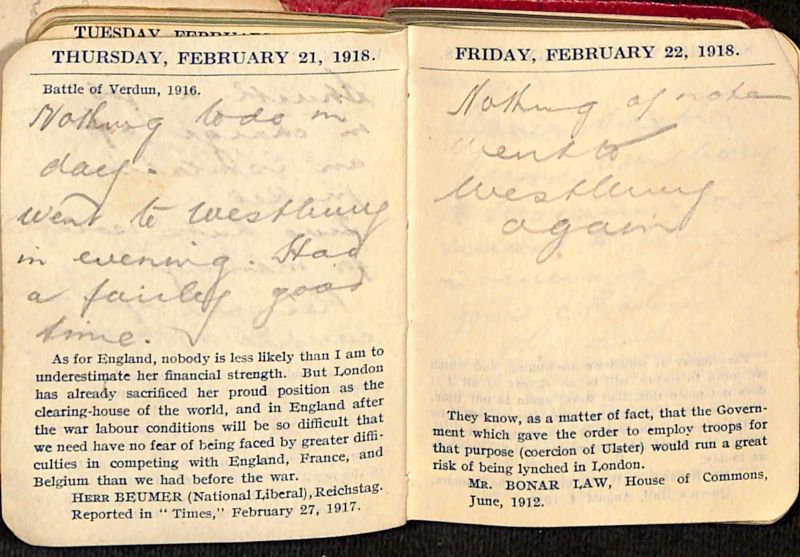 TUESDAY, FEBRUARY
THURSDAY, FEBRUARY 21, 1918.
Battle of Verdun, 1916.
Nothing to do in
day.
Went to Westbury
in evening. Had
a fairley good
time.
As for England, nobody is less likely than I am to
underestimate her financial strength. But London
has already sacrificed her proud position as the
clearing-house of the world, and in England after
the war labour conditions will be so difficult that
we need have no fear of being faced by greater diffi-
culties in competing with England, France, and
Belgium than we had before the war.
HERR BEUMER (National Liberal), Reichstag.
Reported in "Times," February 27, 1917.
FRIDAY, FEBRUARY 22, 1918.
Nothing of note
went to
Westbury
again
They know, as a matter of fact, that the Govern-
ment which gave the order to employ troops for
that purpose (coercion of Ulster) would run a great
risk of being lynched in London.
MR. BONAR LAW, House of Commons,
June, 1912.